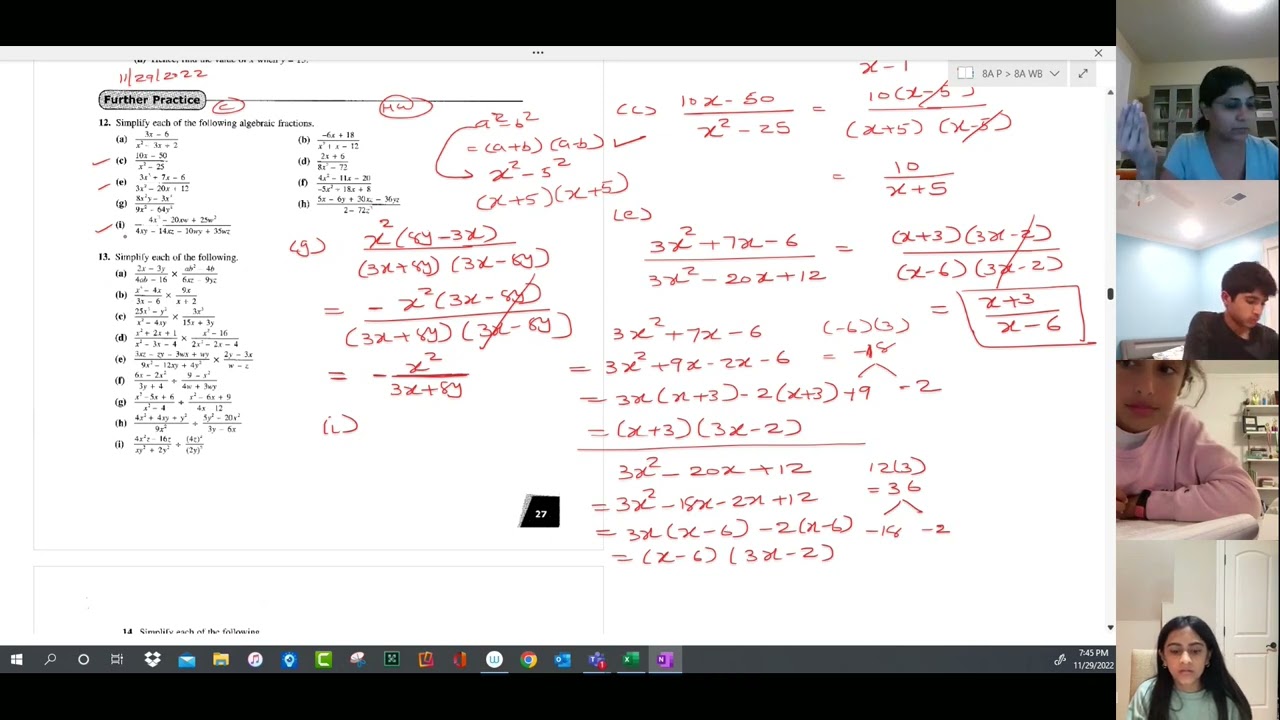 8A P > 8A WB
11/29/2022
Further Practice
C
HW
12. Simplify each of the following algebraic fractions.
(a) 3x − 6 / x² − 3x + 2
(b) −6x + 18 / x² + x − 12
(c) 10x − 50 / x² − 25
(d) 2x + 6 / 8x² − 72
(e) 3x² + 7x − 6 / 3x² − 20x + 12
(f) 4x² − 11x − 20 / −5x² + 18x + 8
(g) 8x²y − 3x³ / 9x² − 64y²
(h) 5x − 6y + 30xz − 36yz / 2 − 72z²
(i) − 4x² − 20xw + 25w² / 4xy − 14xz − 10wy + 35wz
13. Simplify each of the following.
(a) 2x − 3y / 4ab − 16 × ab² − 4b / 6xz − 9yz
(b) x² − 4x / 3x − 6 × 9x / x + 2
(c) 25x² − y² / x² − 4xy × 3x² / 15x + 3y
(d) x² + 2x + 1 / x² − 3x − 4 × x² − 16 / 2x² − 2x − 4
(e) 3xz − zy − 3wx + wy / 9x² − 12xy + 4y² × 2y − 3x / w − z
(f) 6x − 2x² / 3y + 4 ÷ 9 − x² / 4w + 3wy
(g) x² − 5x + 6 / x² − 4 ÷ x² − 6x + 9 / 4x 12
(h) 4x² + 4xy + y² / 9x² ÷ 5y² − 20x² / 3y − 6x
(i) 4x²z − 16z / xy² + 2y² ÷ (4z)² / (2y)²
27
14. Simplify each of the following.
a² − b²
= (a+b) (a-b) ✓
x² − 5²
(x+5) (x+5)
(g) x² (8y − 3x) / (3x + 8y) (3x − 8y)
= − x² (3x − 8y) / (3x + 8y) (3x − 8y)
= − x² / 3x + 8y
(i)
x − 1
(c) 10x − 50 / x² − 25 = 10(x − 5) / (x+5) (x−5)
= 10 / x + 5
(e)
3x² + 7x − 6 / 3x² − 20x + 12 = (x+3) (3x−2) / (x−6) (3x−2)
= x+3 / x−6
3x² + 7x − 6 (−6)(3)
= 3x² + 9x − 2x − 6 = −18
= 3x(x+3) − 2(x+3) +9 −2
= (x+3) (3x−2)
3x² − 20x + 12 12(3)
= 3x² − 18x − 2x + 12 = 36
= 3x(x−6) − 2(x−6) −18 −2
= (x−6) (3x−2)
7:45 PM
11/29/2022